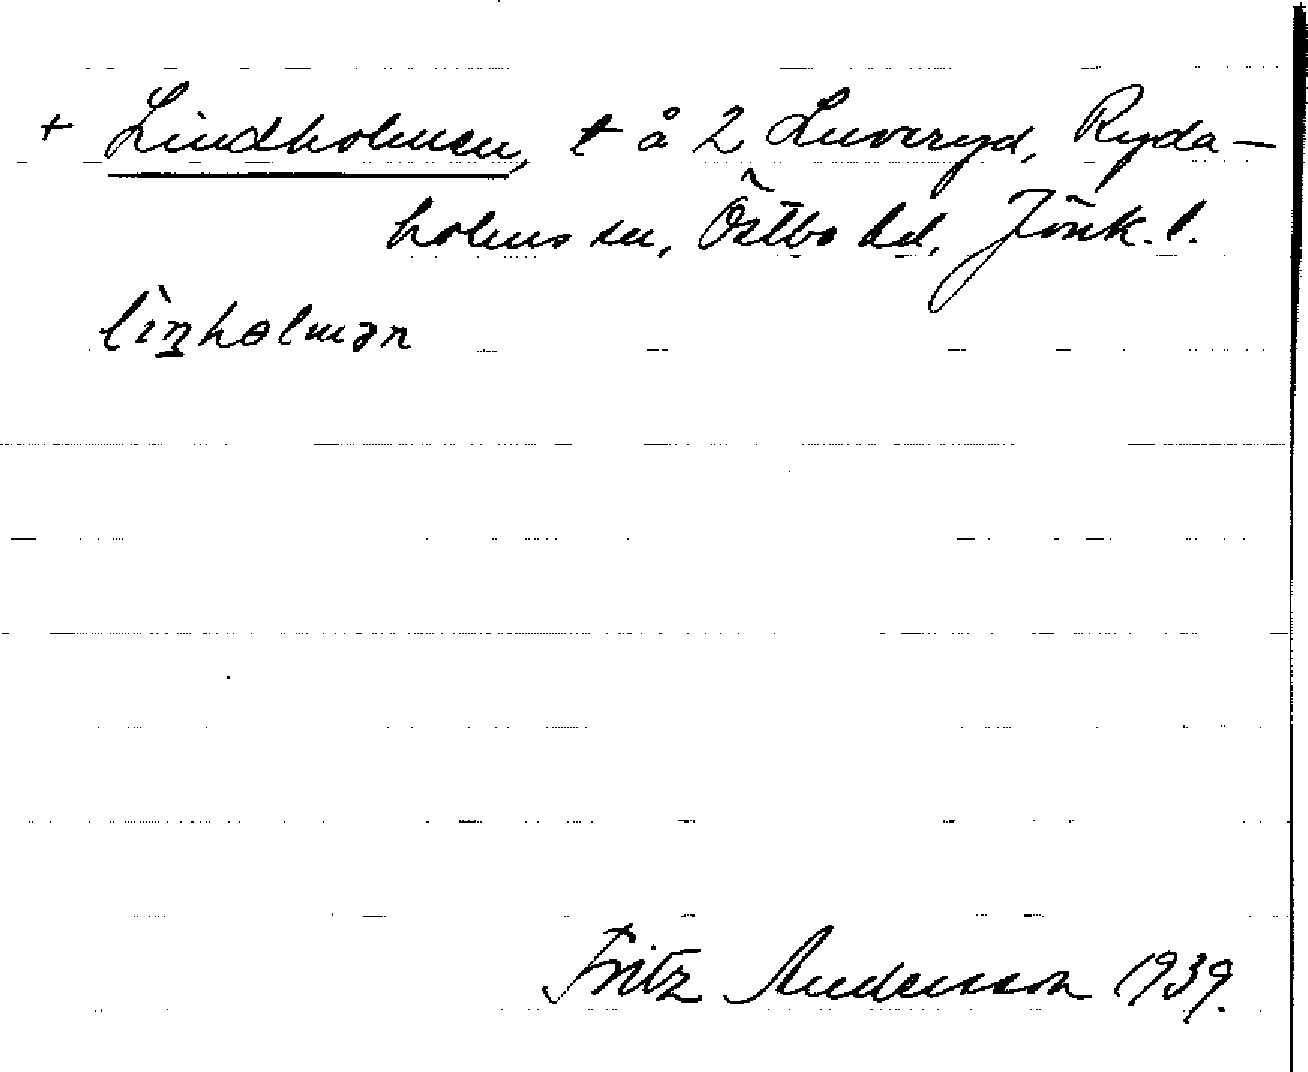 + Lindholmen, t å 2 Luveryd, Ryda-
holms sn, Östbo hd, Jönk. l.
lìnholmən
Fritz Andersson 1939.